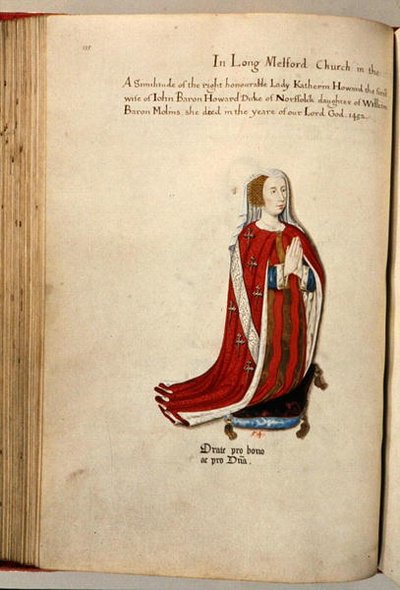 In Long Melford Church in the
A Similitude of the right honourable Lady Katherin Howard the first
wife of John Baron Howard Duke of Norffolck daughter of William
Baron Molins, she died in the yeare of our Lord God. 1452.
Orate pro bono
ac pro Dña.